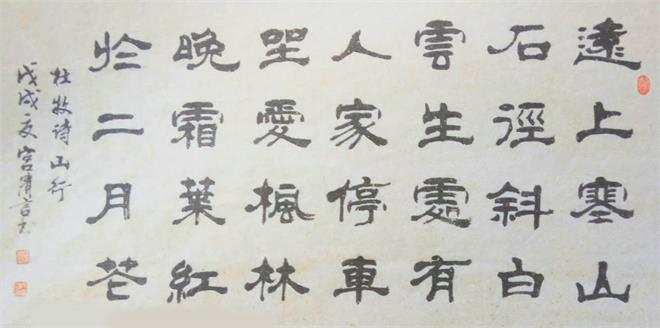 遠上寒山
石徑斜白
雲生處有
人家停車
坐愛楓林
晚霜葉紅
於二月花
杜牧诗山行
戊戌夏